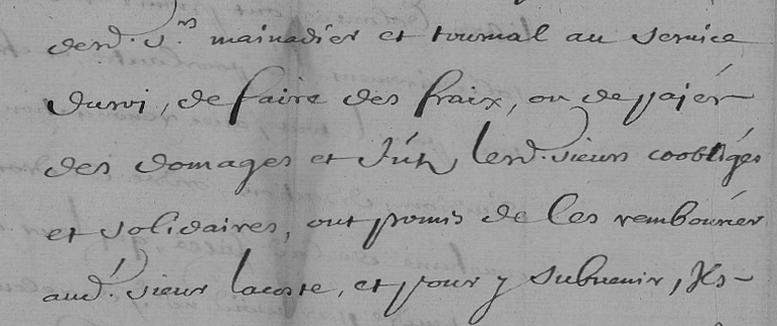 desd. Srs mainadier et tournal au service
du roi, de faire des fraix, ou de paiér
des domages et lesd. sieurs coobligés
et solidaires, ont promis de les rembourser
aud. sieur lacoste, et pour y subvenir, Ils